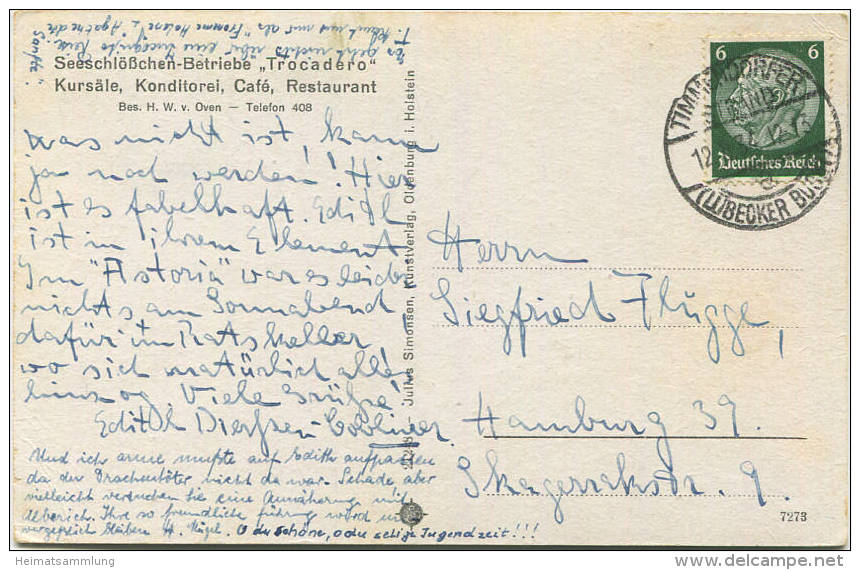 Es geht nichts über eine Incognito Reise.
Seeschlößchen-Betriebe „Trocadero"
Kursäle, Konditorei, Café, Restaurant
Bes. H. W. v. Oven — Telefon 408
was nicht ist, kann
ja noch werden! Hier
ist es fabelhaft. Edith
ist in ihrem Element
Im "Astoria" war es leider
nichts am Sonnabend,
dafür im Ratskeller,
wo sich natürlich alles
hinzog. Viele Grüße
Edith
Und ich arme mußte auf Edith aufpassen
da der Drachentöter nicht da war. Schade aber
vielleicht versuchen Sie eine Annäherung mit
Alberich. Ihre so freundliche führung wird
bleiben H. O du schöne, o du selige Jugendzeit!!!
Julius Simonsen, Kunstverlag, Oldenburg i. Holstein
6 6
Deutsches Reich
TIMMENDORFER
STRAND
LÜBECKER
Herrn
Siegfried Flügge,
Hamburg 39.
Skagerrakstr. 9.
7273
Heimatsammlung
www.delcampe.net